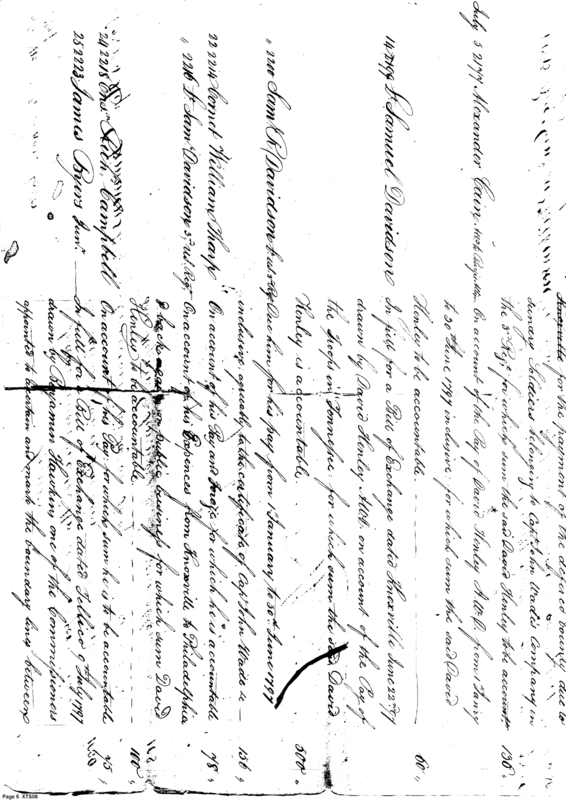 for the payment of the deferred bounty due to
sundry Soldiers belonging to Captn John Wades Company in
the 3d Regt for which sum the said David Henley to be accountb 136 "
July 3 2177 Alexander Cain On account of the Pay of David Henley A W D from
to 30th June 1797 inclusive for which sum the said David
Henley to be accountable 60 "
14 Lt Samuel Davidson In full for a Bill of Exchange dated Knoxville June 22nd 97
drawn by David Henley AWD on account of the Pay of
the Troops in Tennessee for which sum the said David
Henley is accountable. 500 "
" 2211 Saml R Davidson Lt due him for his pay from 1 January to 30th June 1797
inclusive, of Captn John Wade &c 156 "
22 2214 Cornet William Sharp On account of his Pay and forage for which he is accountable 78 "
" 2216 Lt Saml Davidson 3rd Regt On account of his Expences from Knoxville to Philadelphia
& back on public business for which sum David
Henley to be accountable 100 "
24 2218 Ens Campbell On account of his Pay for which sum he is to be accountable 75 "
25 2223 James Byers Junr In full for a Bill of Exchange dated Tellico 6 July 1797
drawn by Benjamin Hawkins one of the Commissioners
appointed to ascertain and mark the boundary line between
Page 6 XTS06